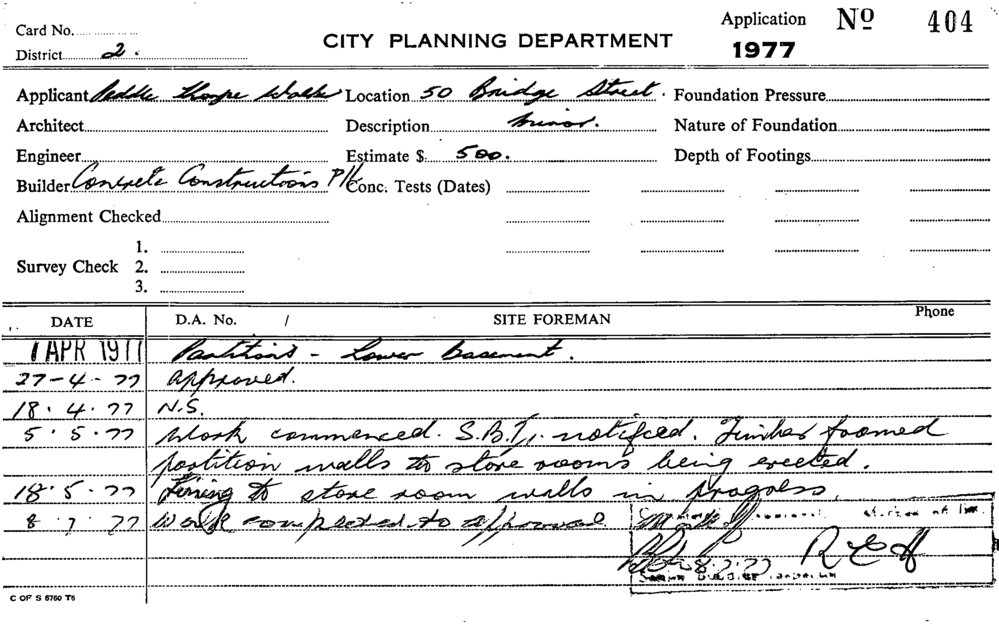 Card No.
District 2.
CITY PLANNING DEPARTMENT
Application Nº 404
1977
Applicant Peddle Thorpe Walker Location 50 Bridge Street. Foundation Pressure
Architect Description Minor. Nature of Foundation
Engineer Estimate $ 500. Depth of Footings
Builder Concrete Constructions P/L Conc. Tests (Dates)
Alignment Checked
Survey Check 1.
2.
3.
DATE D.A. No. / SITE FOREMAN Phone
1 APR 1977 Partitions - Lower Basement.
27-4-77 Approved.
18.4.77 N.S.
5.5.77 Work commenced. S.B.I. notified. Timber framed
partition walls to store rooms being erected.
18.5.77 Lining to store room walls in progress.
8.7.77 Work completed to approval
8.7.77
C OF S 5750 T5